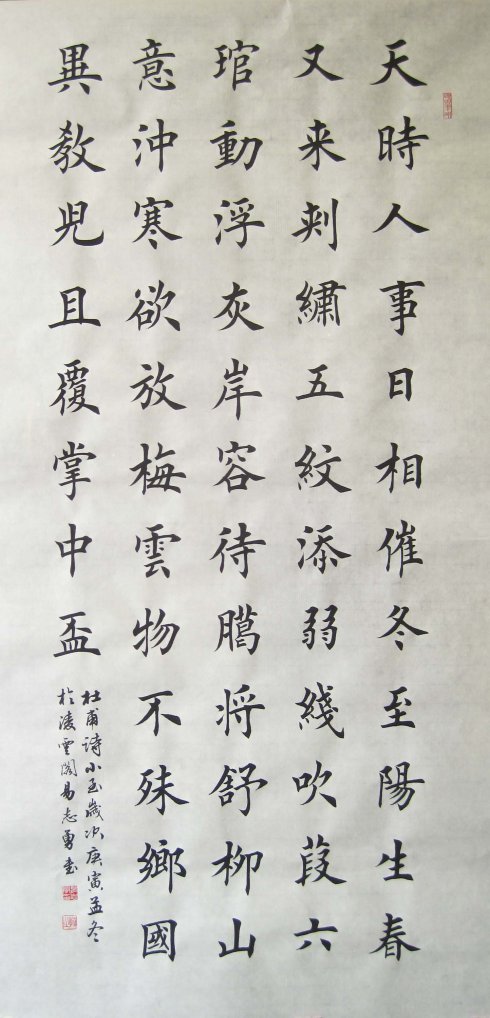 天時人事日相催冬至陽生春
又来刺繡五紋添弱綫吹葭六
琯動浮灰岸容待臈将舒柳山
意沖寒欲放梅雲物不殊鄉國
異教兒且覆掌中盃
杜甫诗小至歲次庚寅孟冬
於凌雲閣易志勇書